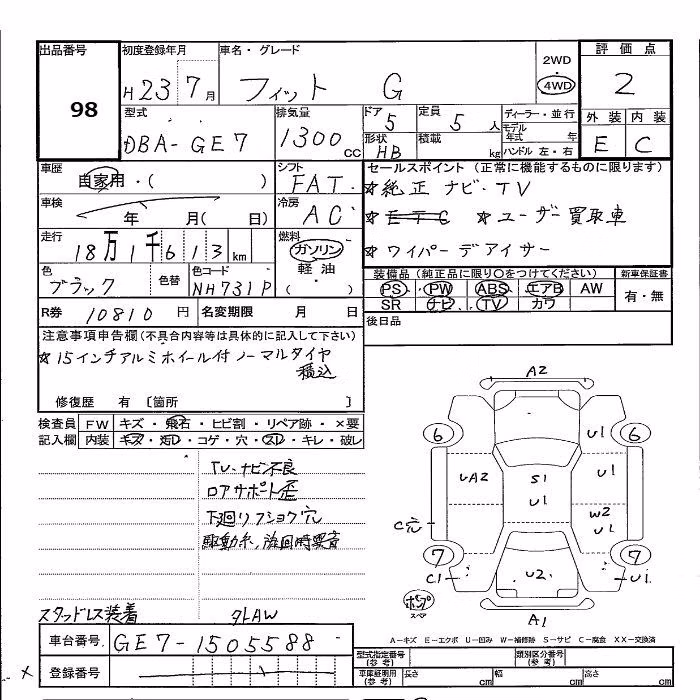 出品番号 98
初度登録年月 H23 7月
車名・グレード フィット G
2WD
4WD
評価点 2
外装 E 内装 C
型式 DBA-GE7
排気量 1300 CC
ドア 5 定員 5 人
形状 HB 積載 kg
ディーラー・並行
モデル年式 年
ハンドル 左・右
車歴 自家用・( )
シフト FAT
セールスポイント (正常に機能するものに限ります)
☆純正 ナビ・TV
車検 年 月( 日)
冷房 AC
☆ETC ☆ユーザー買取車
走行 18万1千613km
燃料 ガソリン
軽油
・
☆ワイパーデアイサー
色 ブラック 色替
色コード NH731P
装備品 (純正品に限り○をつけてください) 新車保証書
PS PW ABS エアB AW
SR ナビ TV カワ
有・無
R券 10810 円 名変期限 月 日
後日品
注意事項申告欄(不具合内容等は具体的に記入して下さい)
☆15インチアルミホイール付ノーマルタイヤ
積込
修復歴 有 〔箇所 〕
検査員 FW キズ・飛石・ヒビ割・リペア跡・×要
記入欄 内装 キズ・汚レ・コゲ・穴・スレ・キレ・破レ
TV、ナビ不良
ロアサポート歪
下廻りフショク穴
駆動系、旋回時異音
スタッドレス装着
A2
6 U1 6
UA2 S1 U1
U1
W2
U1
C穴
7 7
C1 U2 U1
A1
A-キズ E-エクボ U-凹み W-補修跡 S-サビ C-腐食 XX-交換済
車台番号 GE7-1505588
登録番号
型式指定番号 (参考) 類別区分番号 (参考)
車庫証明用 (参考) 長さ cm 幅 cm 高さ cm